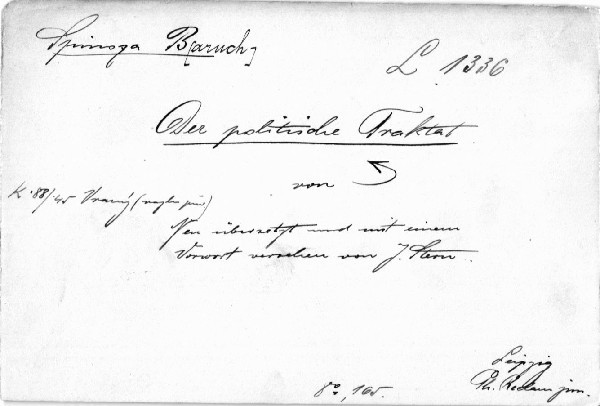 Spinoza B[aruch]
L 1336
Der politische Traktat
von
K 88/45 Vraný
Neu übersetzt und mit einem
Vorwort versehen von J. Stern.
8°, 165.
Leipzig
Ph. Reclam jun.